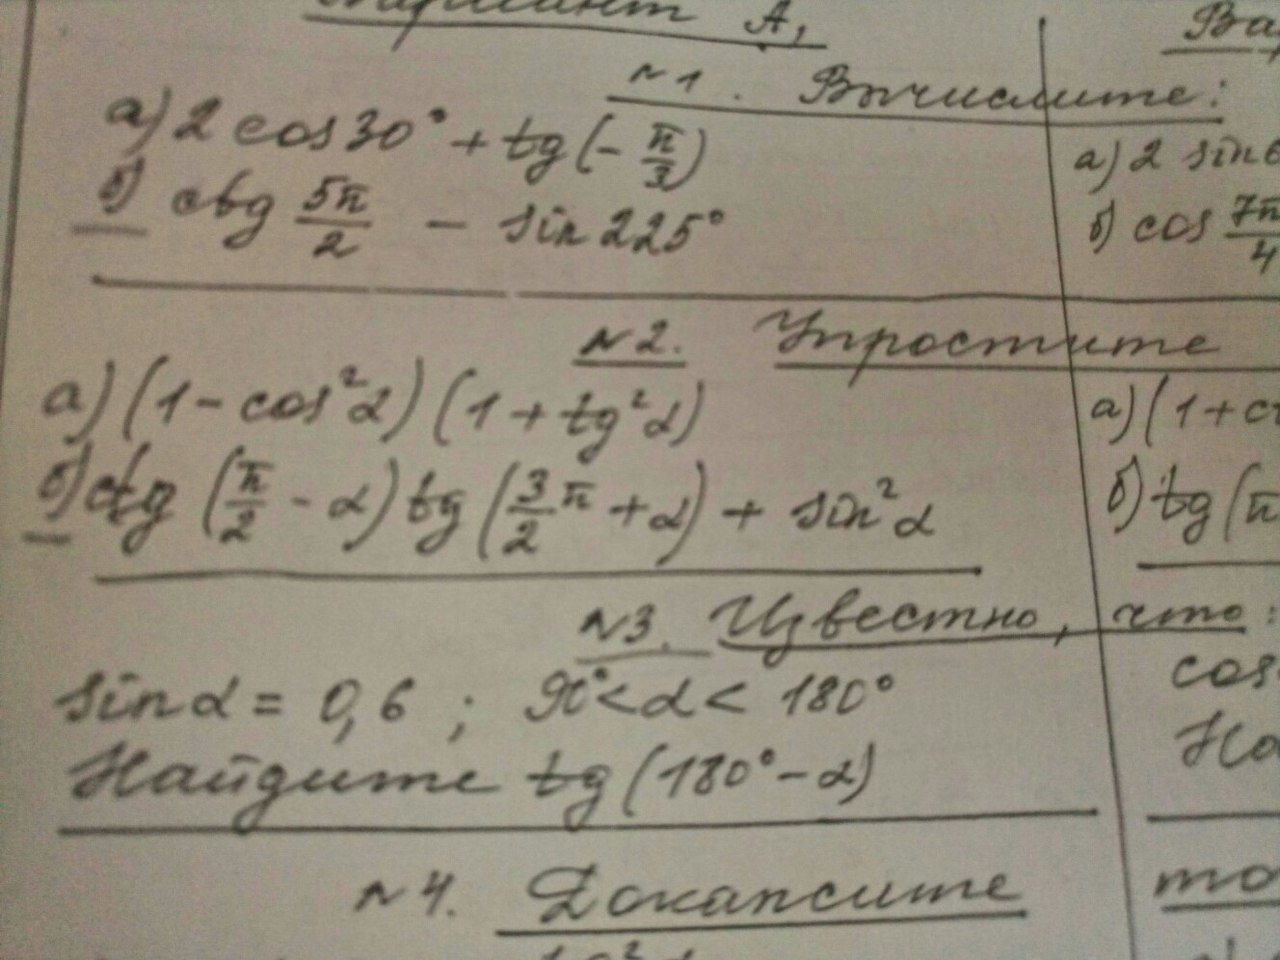 Вариант А₁
№1. Вычислите:
а) 2 cos 30° + tg (- π/3)
б) ctg 5π/2 - sin 225°
№2. Упростите
а) (1 - cos²α) (1 + tg²α)
б) ctg (π/2 - α) tg (3/2 π + α) + sin²α
№3. Известно, что:
sin α = 0,6 ; 90° < α < 180°
Найдите tg (180° - α)
№4. Докажите
Ва
а) 2 sin 6
б) cos 7π/4
а) (1 + c
б) tg (π
cos
На
то